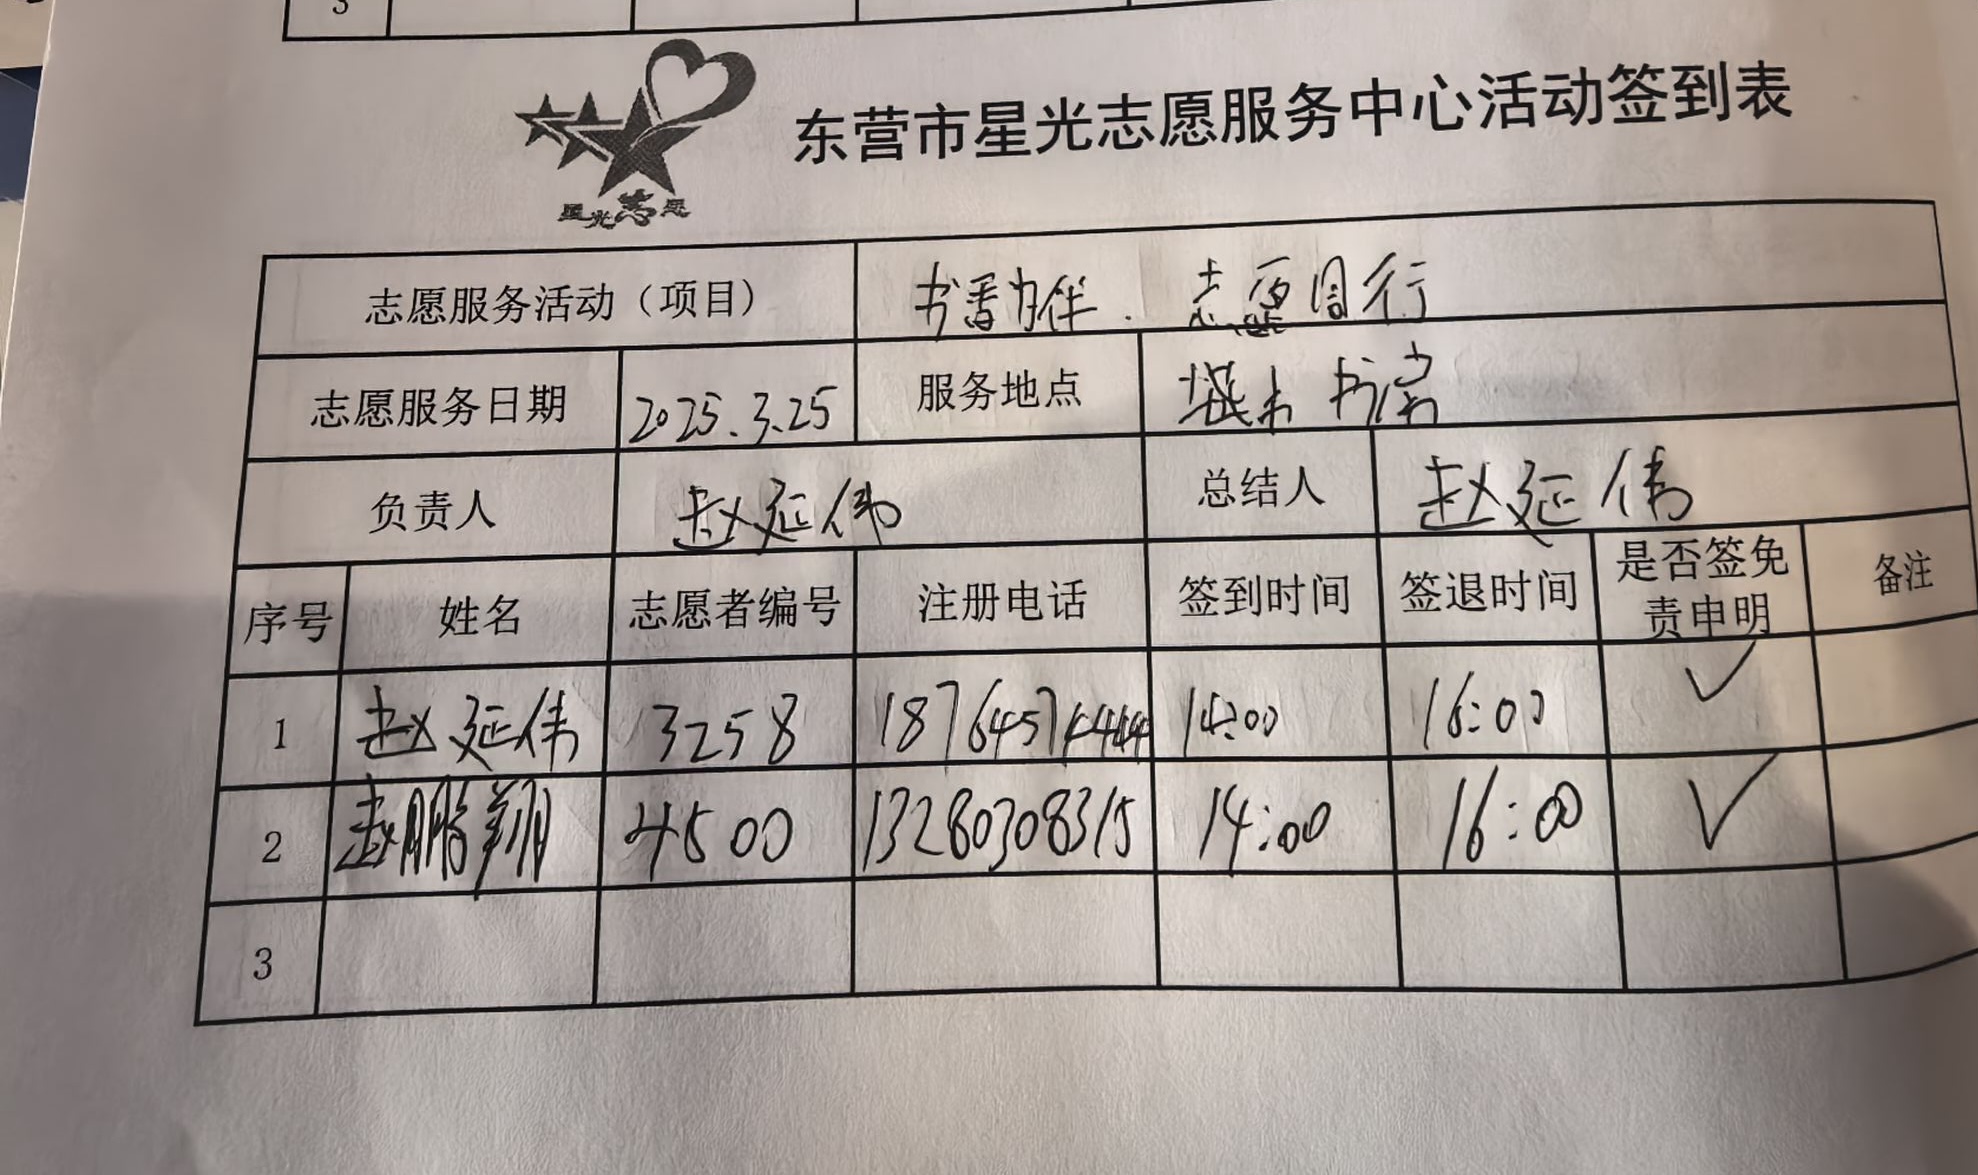 3
星光志愿
东营市星光志愿服务中心活动签到表
志愿服务活动（项目） 书香为伴．志愿同行
志愿服务日期 2025.3.25 服务地点 城市书房
负责人 赵延伟 总结人 赵延伟
序号 姓名 志愿者编号 注册电话 签到时间 签退时间 是否签免责申明 备注
1 赵延伟 3258 14:00 16:00 ✓
2 赵鹏翔 4500 13280308315 14:00 16:00 ✓
3